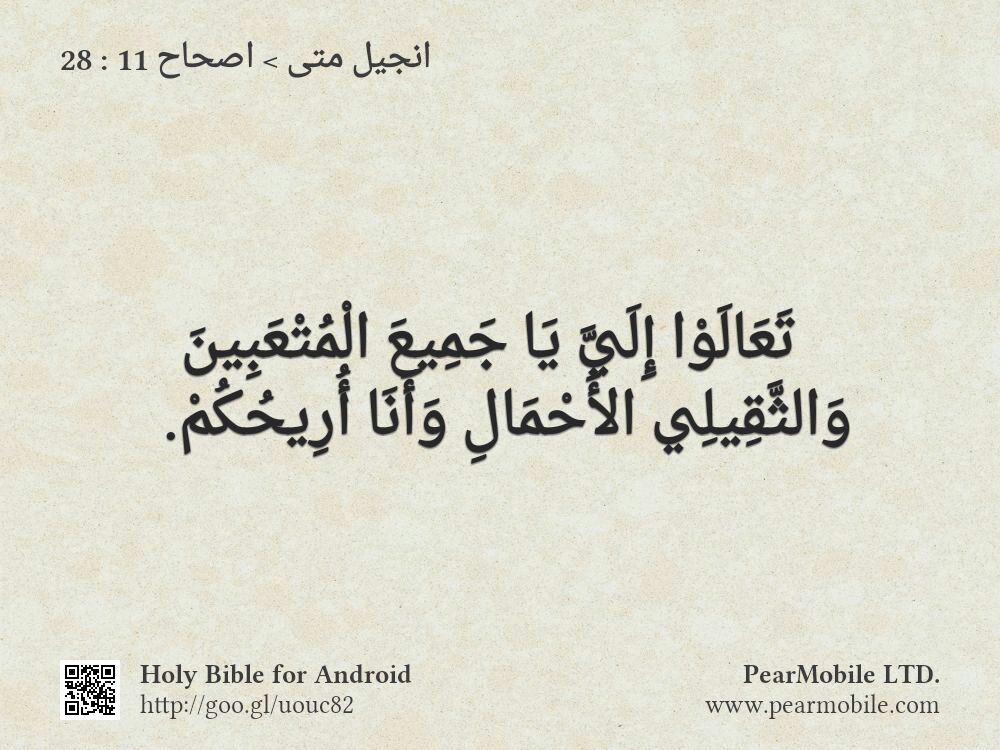 انجيل متى > اصحاح 11 : 28
تَعَالَوْا إِلَيَّ يَا جَمِيعَ الْمُتْعَبِينَ
وَالثَّقِيلِي الأَحْمَالِ وَأَنَا أُرِيحُكُمْ.
Holy Bible for Android
http://goo.gl/uouc82
PearMobile LTD.
www.pearmobile.com